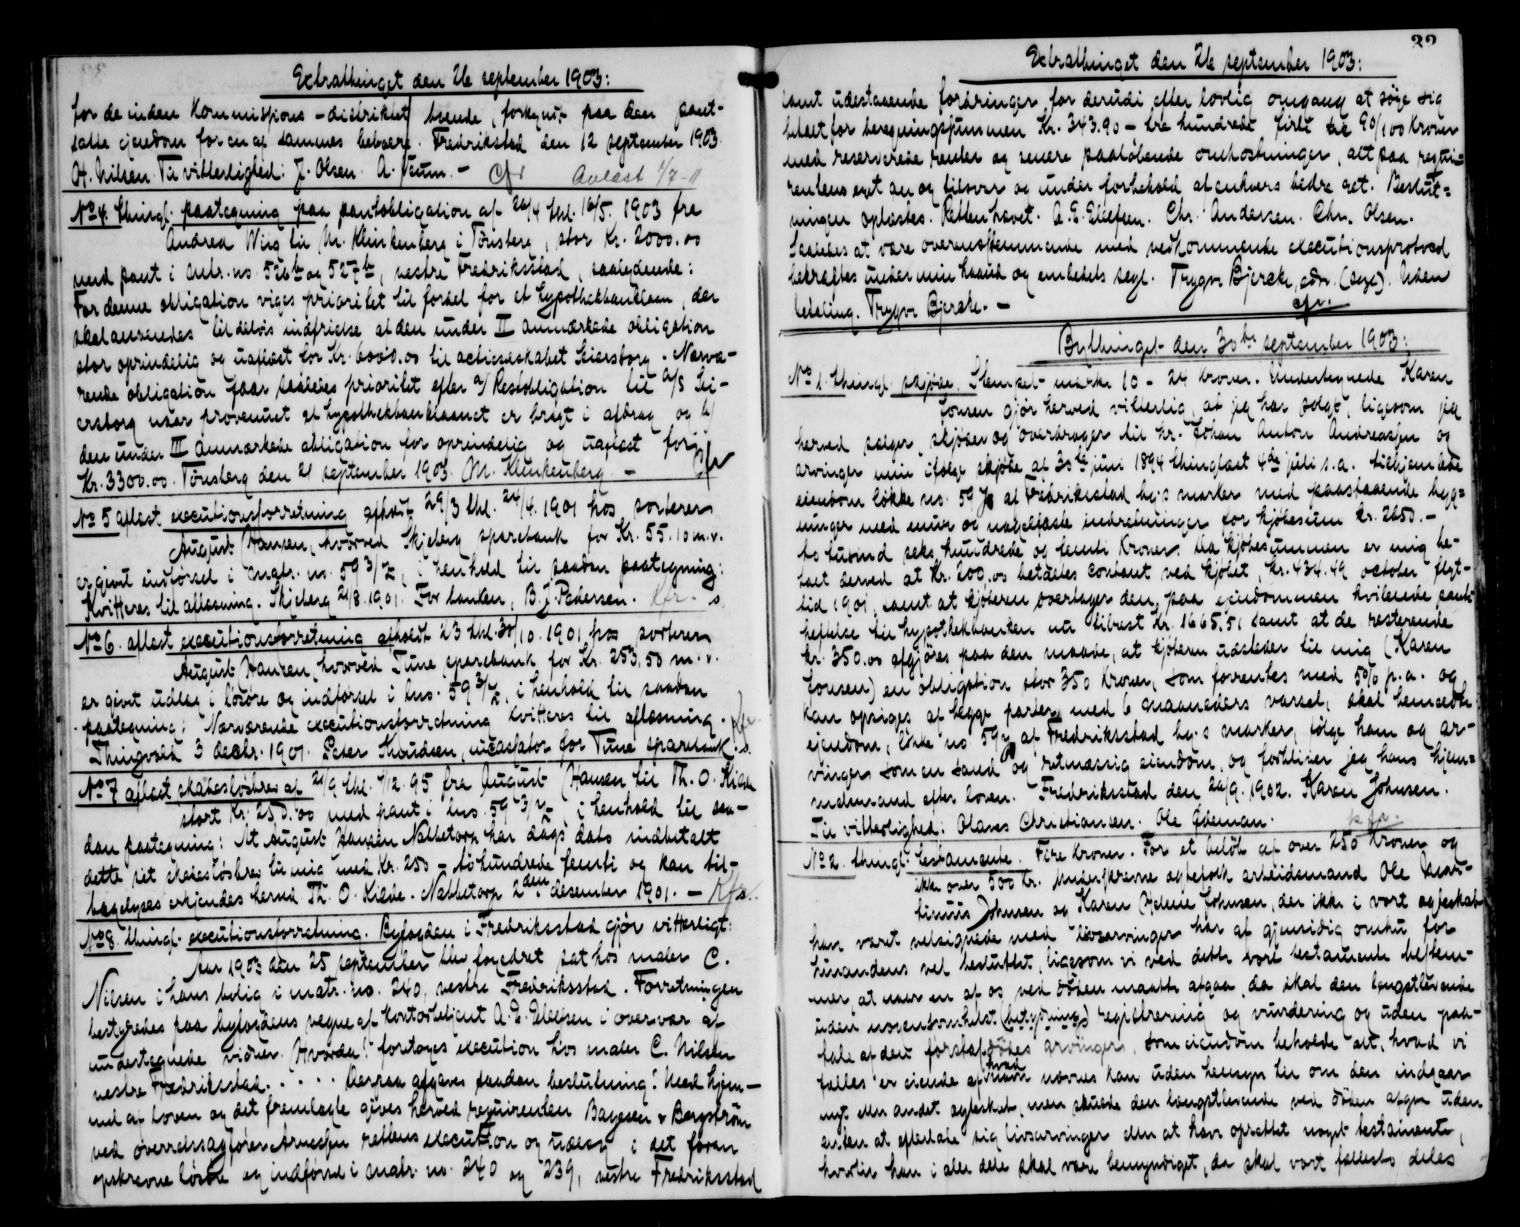 Extrathinget den 26 september 1903:
for de inden Kommissions-distriktet boende, forkynt paa den pant-
satte eiendom for en af sammes beboere. Fredrikstad den 12 september 1903.
H. Nilsen. Til vitterlighed: J. Olsen. A.
No 4. thingl. paategning paa pantobligation af 26/4 thl. 16/5. 1903 fra
Andrea Wiig til M. Klinkenberg i Tönsberg, stor Kr. 2000.00
med pant i matr. no. 526 og 527, vestre Fredriksstad, saalydende:
For denne obligation viges prioritet til fordel for et hypothekbanklaan, der
skal anvendes til delvis indfrielse af den under II anmærkede obligation
stor oprindelig og uaflæst for Kr. 6000.00 til actieselskabet Seiersborg. Nærvæ-
rende obligation faar saaledes prioritet efter a/ Restobligation til A/S Sei-
ersborg naar provenuet af hypothekbanklaanet er bragt i afdrag og b/
den under III anmærkede obligation for oprindelig og uaflæst for
Kr. 3300.00. Tönsberg den 21 september 1903. M. Klinkenberg. -
No 5 aflæst executionsforretning afholdt 29/3 thl. 24/4. 1901 hos sorterer
August Hansen, hvorved Skjeberg sparebank for Kr. 55.10 m.v.
er givet indförsel i matr. no. 593/2, i henhold til saadan paategning:
Kvitteres til aflæsning. Skjeberg 21/8.1901. For banken, B. J. Pedersen. Kfr.
No 6. aflæst executionsforretning afholdt 23 thl. 30/10. 1901 hos sorterer
August Hansen, hvorved Tune sparebank for Kr. 253,50 m.v.
er givet udlæg i lösöre og indförsel i bno. 593/2, i henhold til saadan
paategning: Nærværende executionsforretning kvitteres til aflæsning. Kfr.
Thingvold 3 decbr. 1901. Peter Knudsen, incassator for Tune sparebank.
No 7 aflæst skadeslösbrev af 21/9 thl. 4/12. 95 fra August Hansen til Th. O. Kiær
stort Kr. 250.00 med pant i bno. 593/2 i henhold til saa-
dan paategning: At August Hansen Nabbetorp har dags dato indbetalt
dette sit skadeslösbrev til mig med Kr. 250 - tohundrede femti og kan til-
bagelyses erkjendes herved Th. O. Kiær. Nabbetorp 2den desember 1901. - Kfr.
No 8. thingl. executionsforretning. Byfogden i Fredriksstad gjör vitterligt:
Aar 1903 den 25 september blev foged ret sat hos maler C.
Nilsen i hans bolig i matr. no. 240, vestre Fredriksstad. Forretningen
bestyredes paa byfogdens vegne af kontorbetjent A. E. Ellefsen i overvær af
undertegnede vidner. Hvorda: foretoges execution hos maler C. Nilsen
vestre Fredriksstad. . . . . Derpaa afgaves saadan beslutning: Med hjem-
mel af loven og det fremlagte gives herved reqvirenten Baggesen & Bergström
ved overretssagförer Arnesen rettens execution og udlæg i det foran
opskrevne lösöre og indförsel i matr. no. 240 og 239, vestre Fredriksstad
32
Extrathinget den 26 september 1903:
samt udestaaende fordringer, for derudi efter lovlig omgang at söge sig
betalt for beregningssummen Kr. 343.90 - tre hundrede firti tre 90/100 Kroner
med reserverede renter og senere paalöbende omkostninger, alt paa reqvi-
rentens eget an og tilsvar og under forbehold af enhvers bedre ret. Beslut-
ningen oplæstes. Retten hævet. A. E. Ellefsen. Chr. Andersen. Chr. Olsen.
Saaledes at være overensstemmende med vedkommende executionsprotocol
bekræftes under min haand og embedets segl. Trygve Bjerche, cdm (segl). Uden
betaling. Trygve Bjerche. -
cfr.
Bythinget den 30te september 1903:
No 1. thingl. skjöde. Stemplet mærke 10 - 24 kroner. Undertegnede Karen
Jonsen gjör herved vitterlig, at jeg har solgt, ligesom jeg
herved sælger, skjöder og overdrager til hr. Johan Anton Andreassen og
arvinger min ifölge skjöde af 30te juni 1894 thinglæst 4de juli s.a. tilhjemlede
eiendom lökke no. 59 af Fredriksstad bys marker med paastaaende byg-
ninger med mur og nagelfaste indretninger for kjöbesum Kr. 2650. -
to tusind seks hundrede og femti Kroner. Da kjöbesummen er mig be-
talt derved at Kr. 200,00 betaltes contant ved kjöbet, Kr. 434.49 october flyt-
tid 1901, samt at kjöberen overtager den paa eiendommen hvilende pant-
heftelse til hypothekbanken nu tilrest Kr. 1665,51 samt at de resterende
kr. 350.00 afgjöres paa den maade, at kjöberen udsteder til mig (Karen
Jonsen) en obligation stor 350 Kroner, som forrentes med 5% p.a. og
kan opsiges af begge parter med 6 maaneders varsel, skal benævnte
eiendom, lökke no 59 af Fredriksstad bys marker, fölge ham og ar-
vinger som en sand og retmæssig eiendom, og forbliver jeg hans hjem-
melsmand efter loven. Fredriksstad den 26/9. 1902. Karen Johnsen.
Til vitterlighed: Olaves Christiansen. Ole Ödeman. Kfr.
No 2. thingl. testamente. Fire Kroner. For et belöb af over 250 Kroner og
ikke over 500 kr. Underskrevne ægtefolk arbeidsmand Ole
Johnsen og Karen Helene Johnsen, der ikke i vort ægteskab
har været velsignede med livsarvinger har af gjensidig omhu for
hinandens vel besluttet, ligesom vi ved dette vort testamente bestem-
mer at naar en af os ved döden maatte afgaa, da skal den længstlevende
uden nogensomhelst (betydning) registrering og vurdering og uden paa-
tale af den förstafdödes arvinger, som eiendom beholde alt, hvad vi
fælles er eiende af hvad navn nævnes kan uden hensyn til om den indgaar
nyt eller andet ægteskab, men skulde den længstlevende ved döden afgaa uden
enten at efterlade sig livsarvinger eller at have oprettet noget testamente,
hvortil han i alle dele skal være bemyndiget, da skal vort fællesbo deles